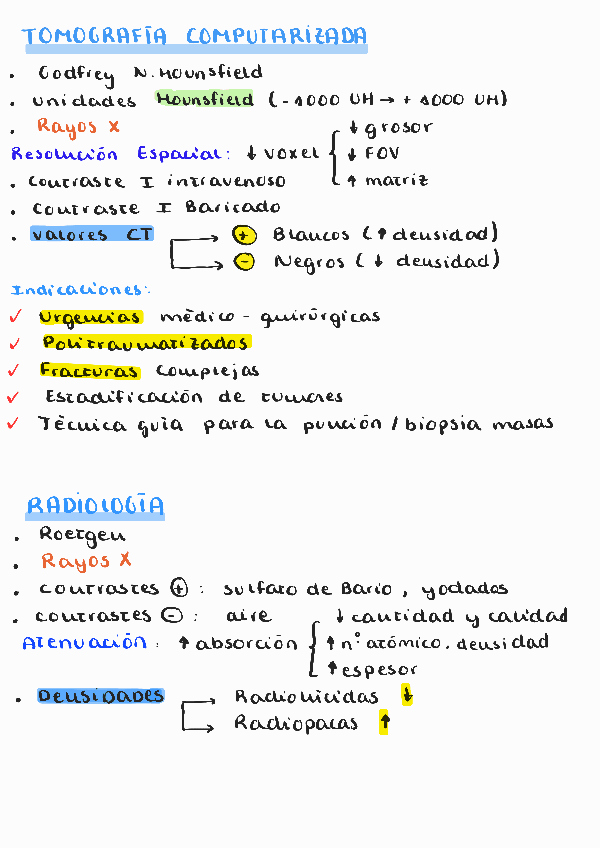 TOMOGRAFÍA COMPUTARIZADA
• Godfrey N. Hounsfield
• unidades Hounsfield (-1000 UH → + 1000 UH)
• Rayos X
Resolución Espacial: ↓ voxel { ↓ grosor
↓ FOV
↑ matriz
• Contraste I intravenoso
• Contraste I Baricado
• valores CT → + Blancos (↑ densidad)
→ - Negros (↓ densidad)
Indicaciones:
✓ Urgencias médico - quirúrgicas
✓ Politraumatizados
✓ Fracturas complejas
✓ Estadificación de tumores
✓ Técnica guía para la punción / biopsia masas
RADIOLOGÍA
• Roetgen
• Rayos X
• contrastes + : sulfato de Bario, yodados
• contrastes - : aire
Atenuación: ↑ absorción { ↓ cantidad y calidad
↑ nº atómico. densidad
↑ espesor
• Densidades → Radiolúcidas ↓
→ Radiopacas ↑